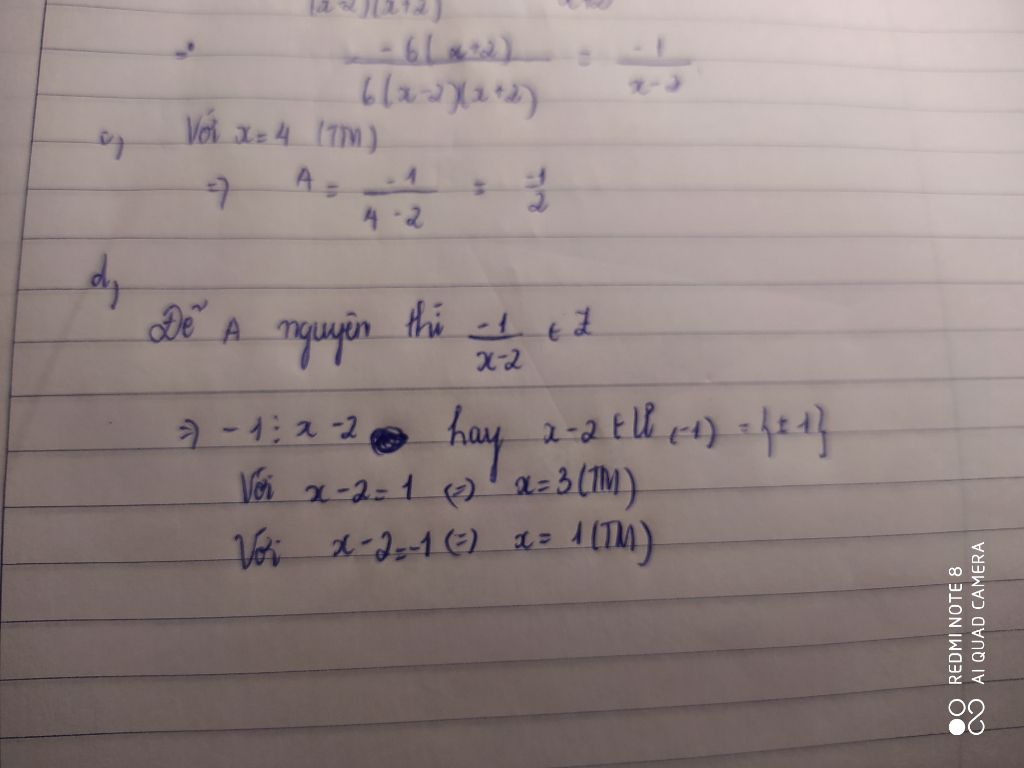 (x-2)(x+2)
= -6(x+2) / 6(x-2)(x+2) = -1 / x-2
c, Với x=4 (TM)
=> A = -1 / 4-2 = -1 / 2
d,
Để A nguyên thì -1 / x-2 ∈ Z
=> -1 ⋮ x-2 hay x-2 ∈ Ư (-1) = {±1}
Với x-2=1 (=) x=3 (TM)
Với x-2=-1 (=) x=1 (TM)
REDMI NOTE 8
AI QUAD CAMERA